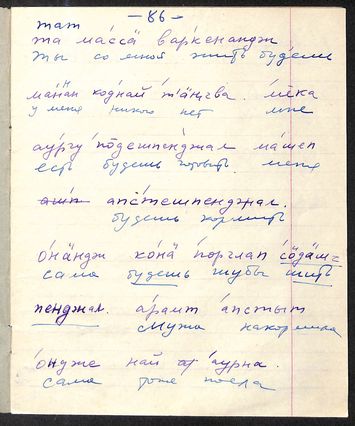 — 86 —
тат
та массӓ варкенандж
ты со мной жить будешь
ма́нӓн коднай тӓнгва. ме̄ка
у меня никого нет мне
аургу подешпенджал машеп
есть будешь готовить. меня
апстешпенджал.
будешь кормить
о́нӓндж ко́нӓ порглап сӧдӓм=
сама будешь шубы шить
пенджал. арамт апстыт
мужа накормила
о́нудже най аурна.
сама тоже поела